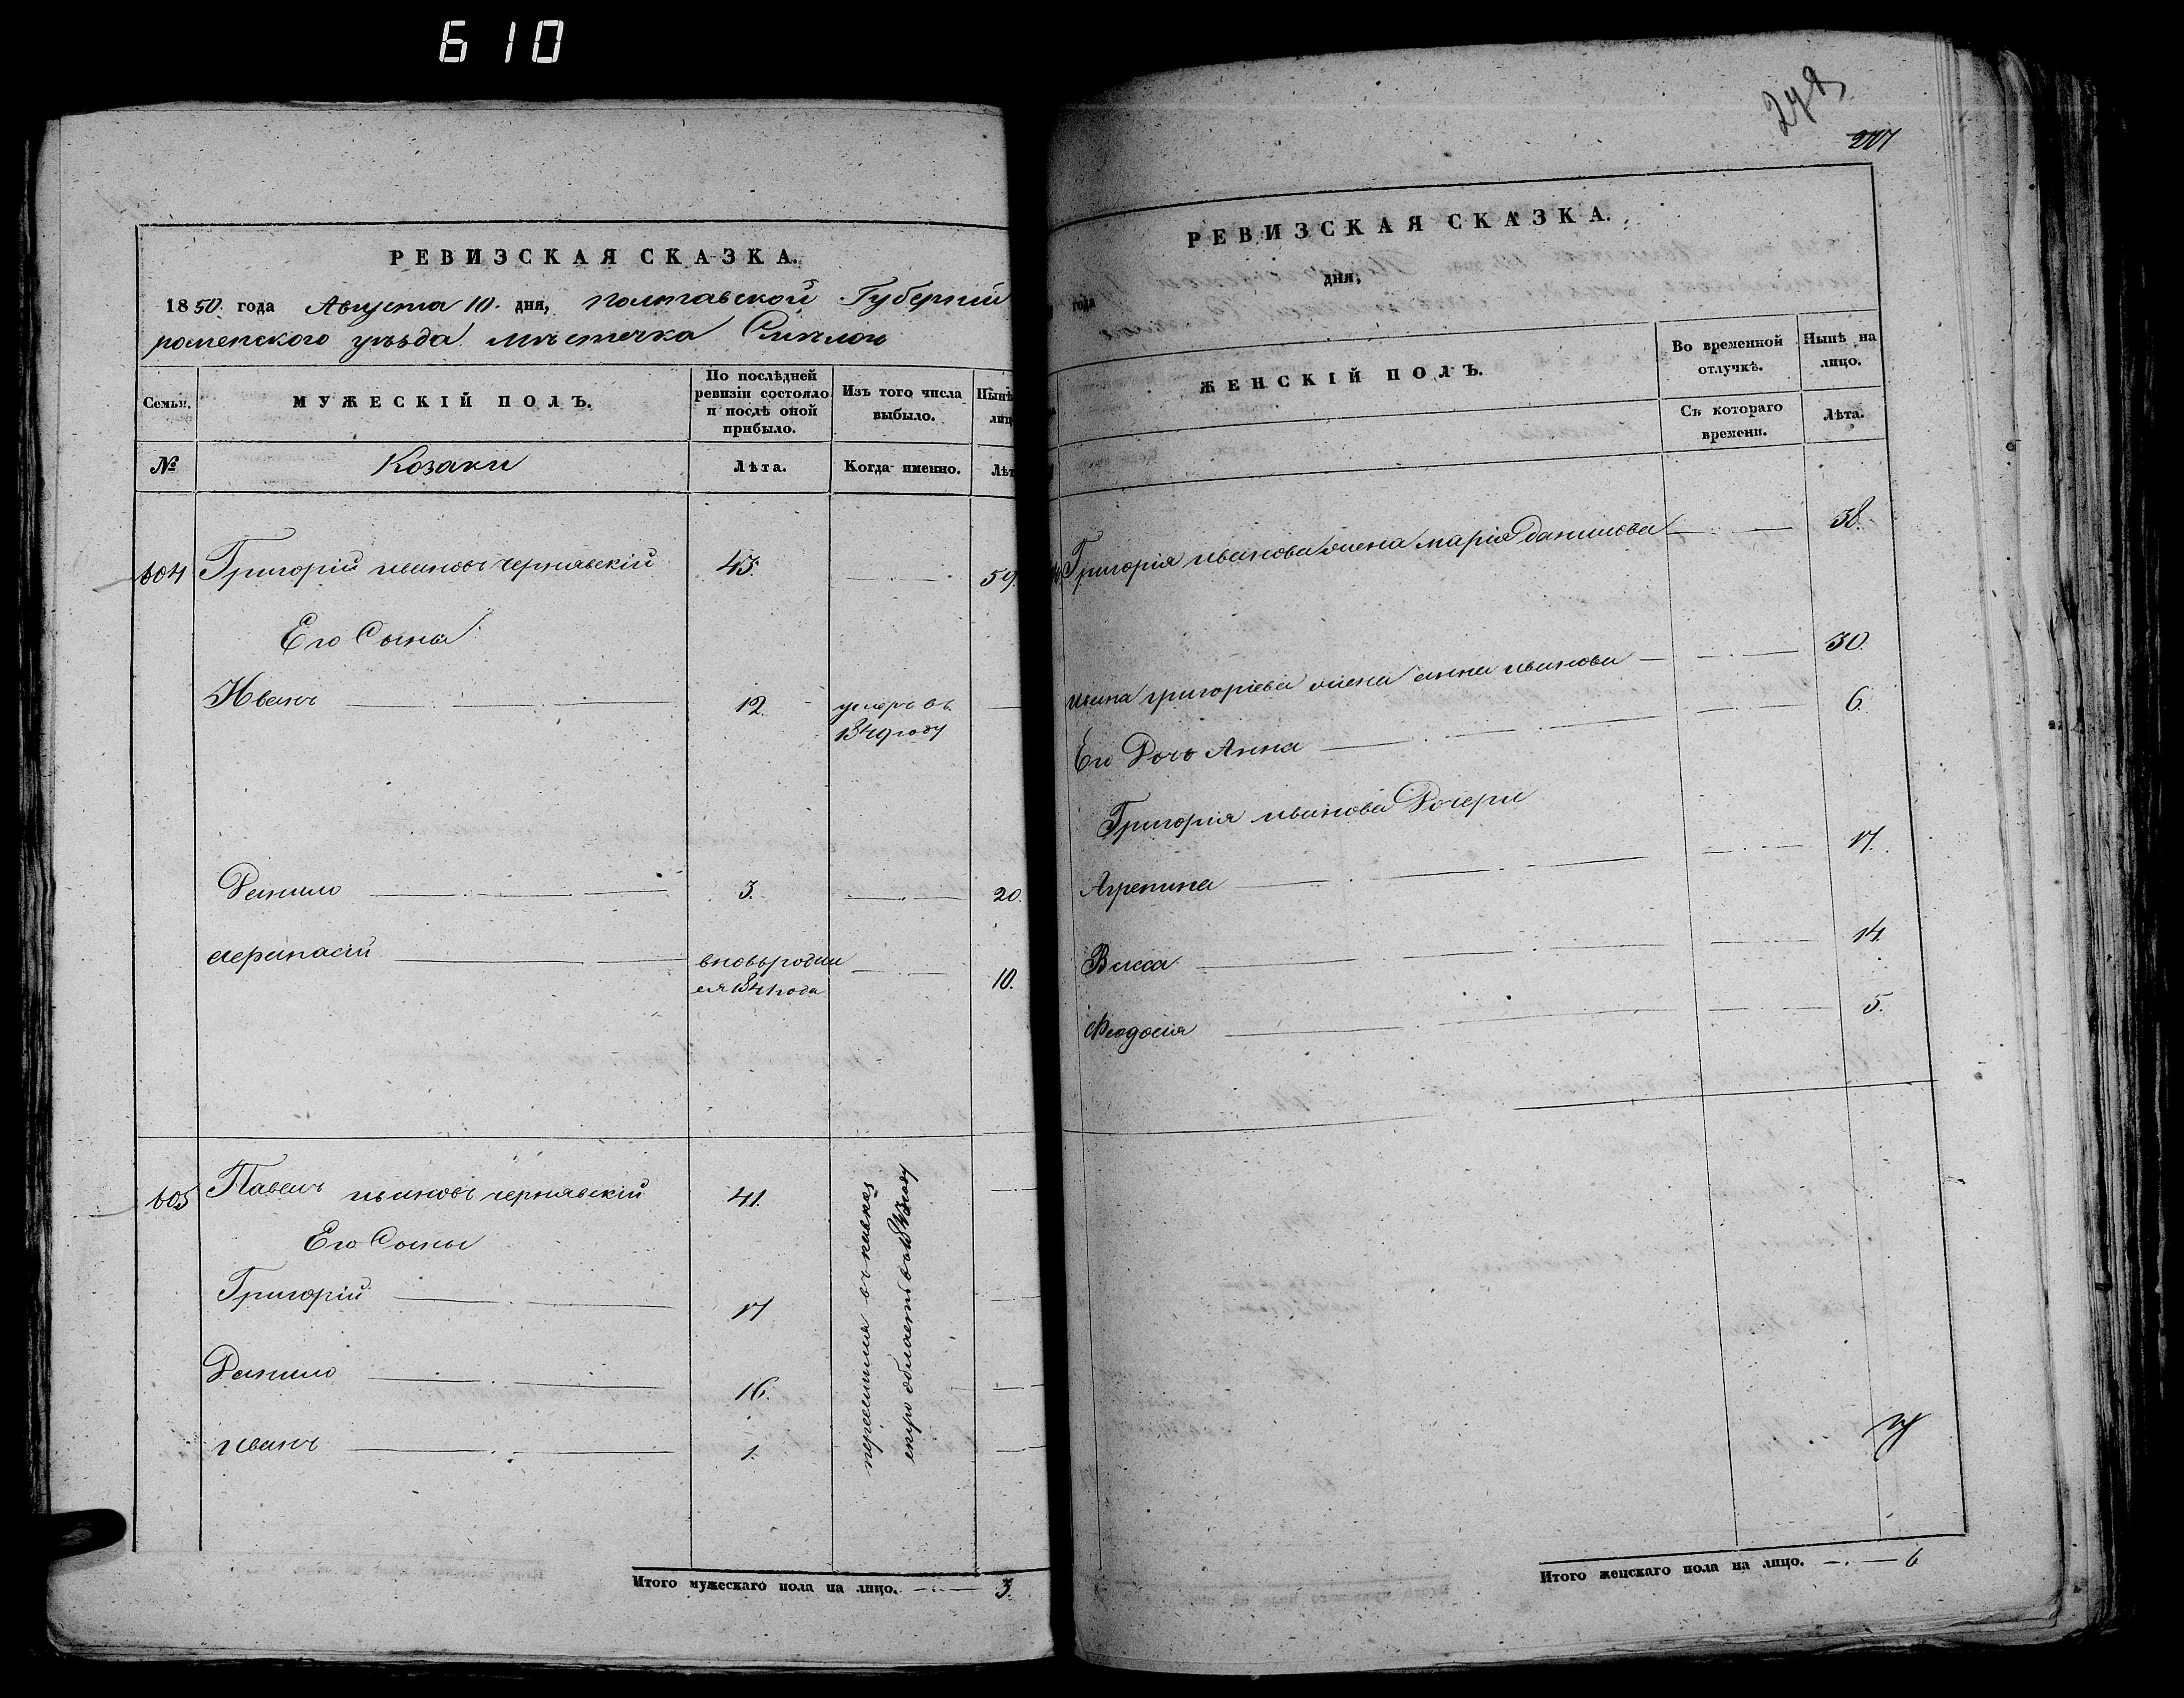 610
РЕВИЗСКАЯ СКАЗКА.
1850 года Августа 10. дня, Полтавской Губерніи
роменского уѣзда мѣстечка Смѣлои
Семьи.
МУЖЕСКІЙ ПОЛЪ.
По послѣдней ревизіи состояло и послѣ оной прибыло.
Изъ того числа выбыло.
№
Козаки
Лѣта.
Когда именно.
604 Григорій ивановъ чернявскій 45. 59.
Его Сыны
Иванъ 12. умеръ въ
1849 году
Данило 3. 20.
Афанасій вновьродил
ся 1841 года 10.
605 Павелъ ивановъ чернявскій 41.
Его Сыны
Григорій 17
Данило 16.
иванъ 1.
Итого мужескаго пола на лицо. 3.
207
РЕВИЗСКАЯ СКАЗКА.
года дня,
ЖЕНСКІЙ ПОЛЪ.
Во временной отлучкѣ.
Нынѣ на лицо.
Съ котораго времени.
Лѣта.
Григорія иванова жена марія Данилова 38.
ивана григоріева жена анна иванова 30.
Его Дочь Анна 6.
Григорія иванова Дочери
Агрепина 17.
Васса 14.
Феодосія 5.
Итого женскаго пола на лицо. 6